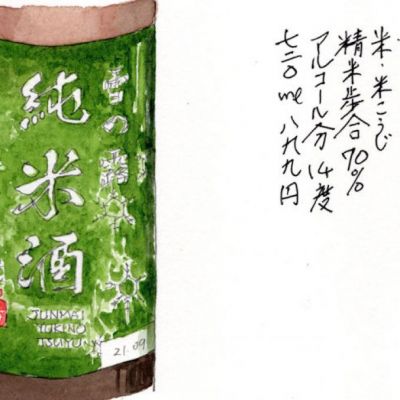 米・米こうじ
精米歩合70%
アルコール分14度
七二〇ml 八九九円
雪の露
純米酒
JUNMAI
YUKINO
TSUYU
21.09